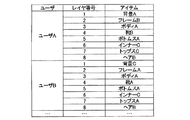 ユーザ レイヤ番号 アイテム
ユーザA
1 背景A
2 フレームB
3 ボディA
4 靴B
5 ボトムスA
6 インナーC
7 トップスC
8 ヘアB
ユーザB
1 背景C
2 フレームA
3 ボディA
4 靴A
5 ボトムスC
6 インナーC
7 トップスA
8 ヘアB
… … …